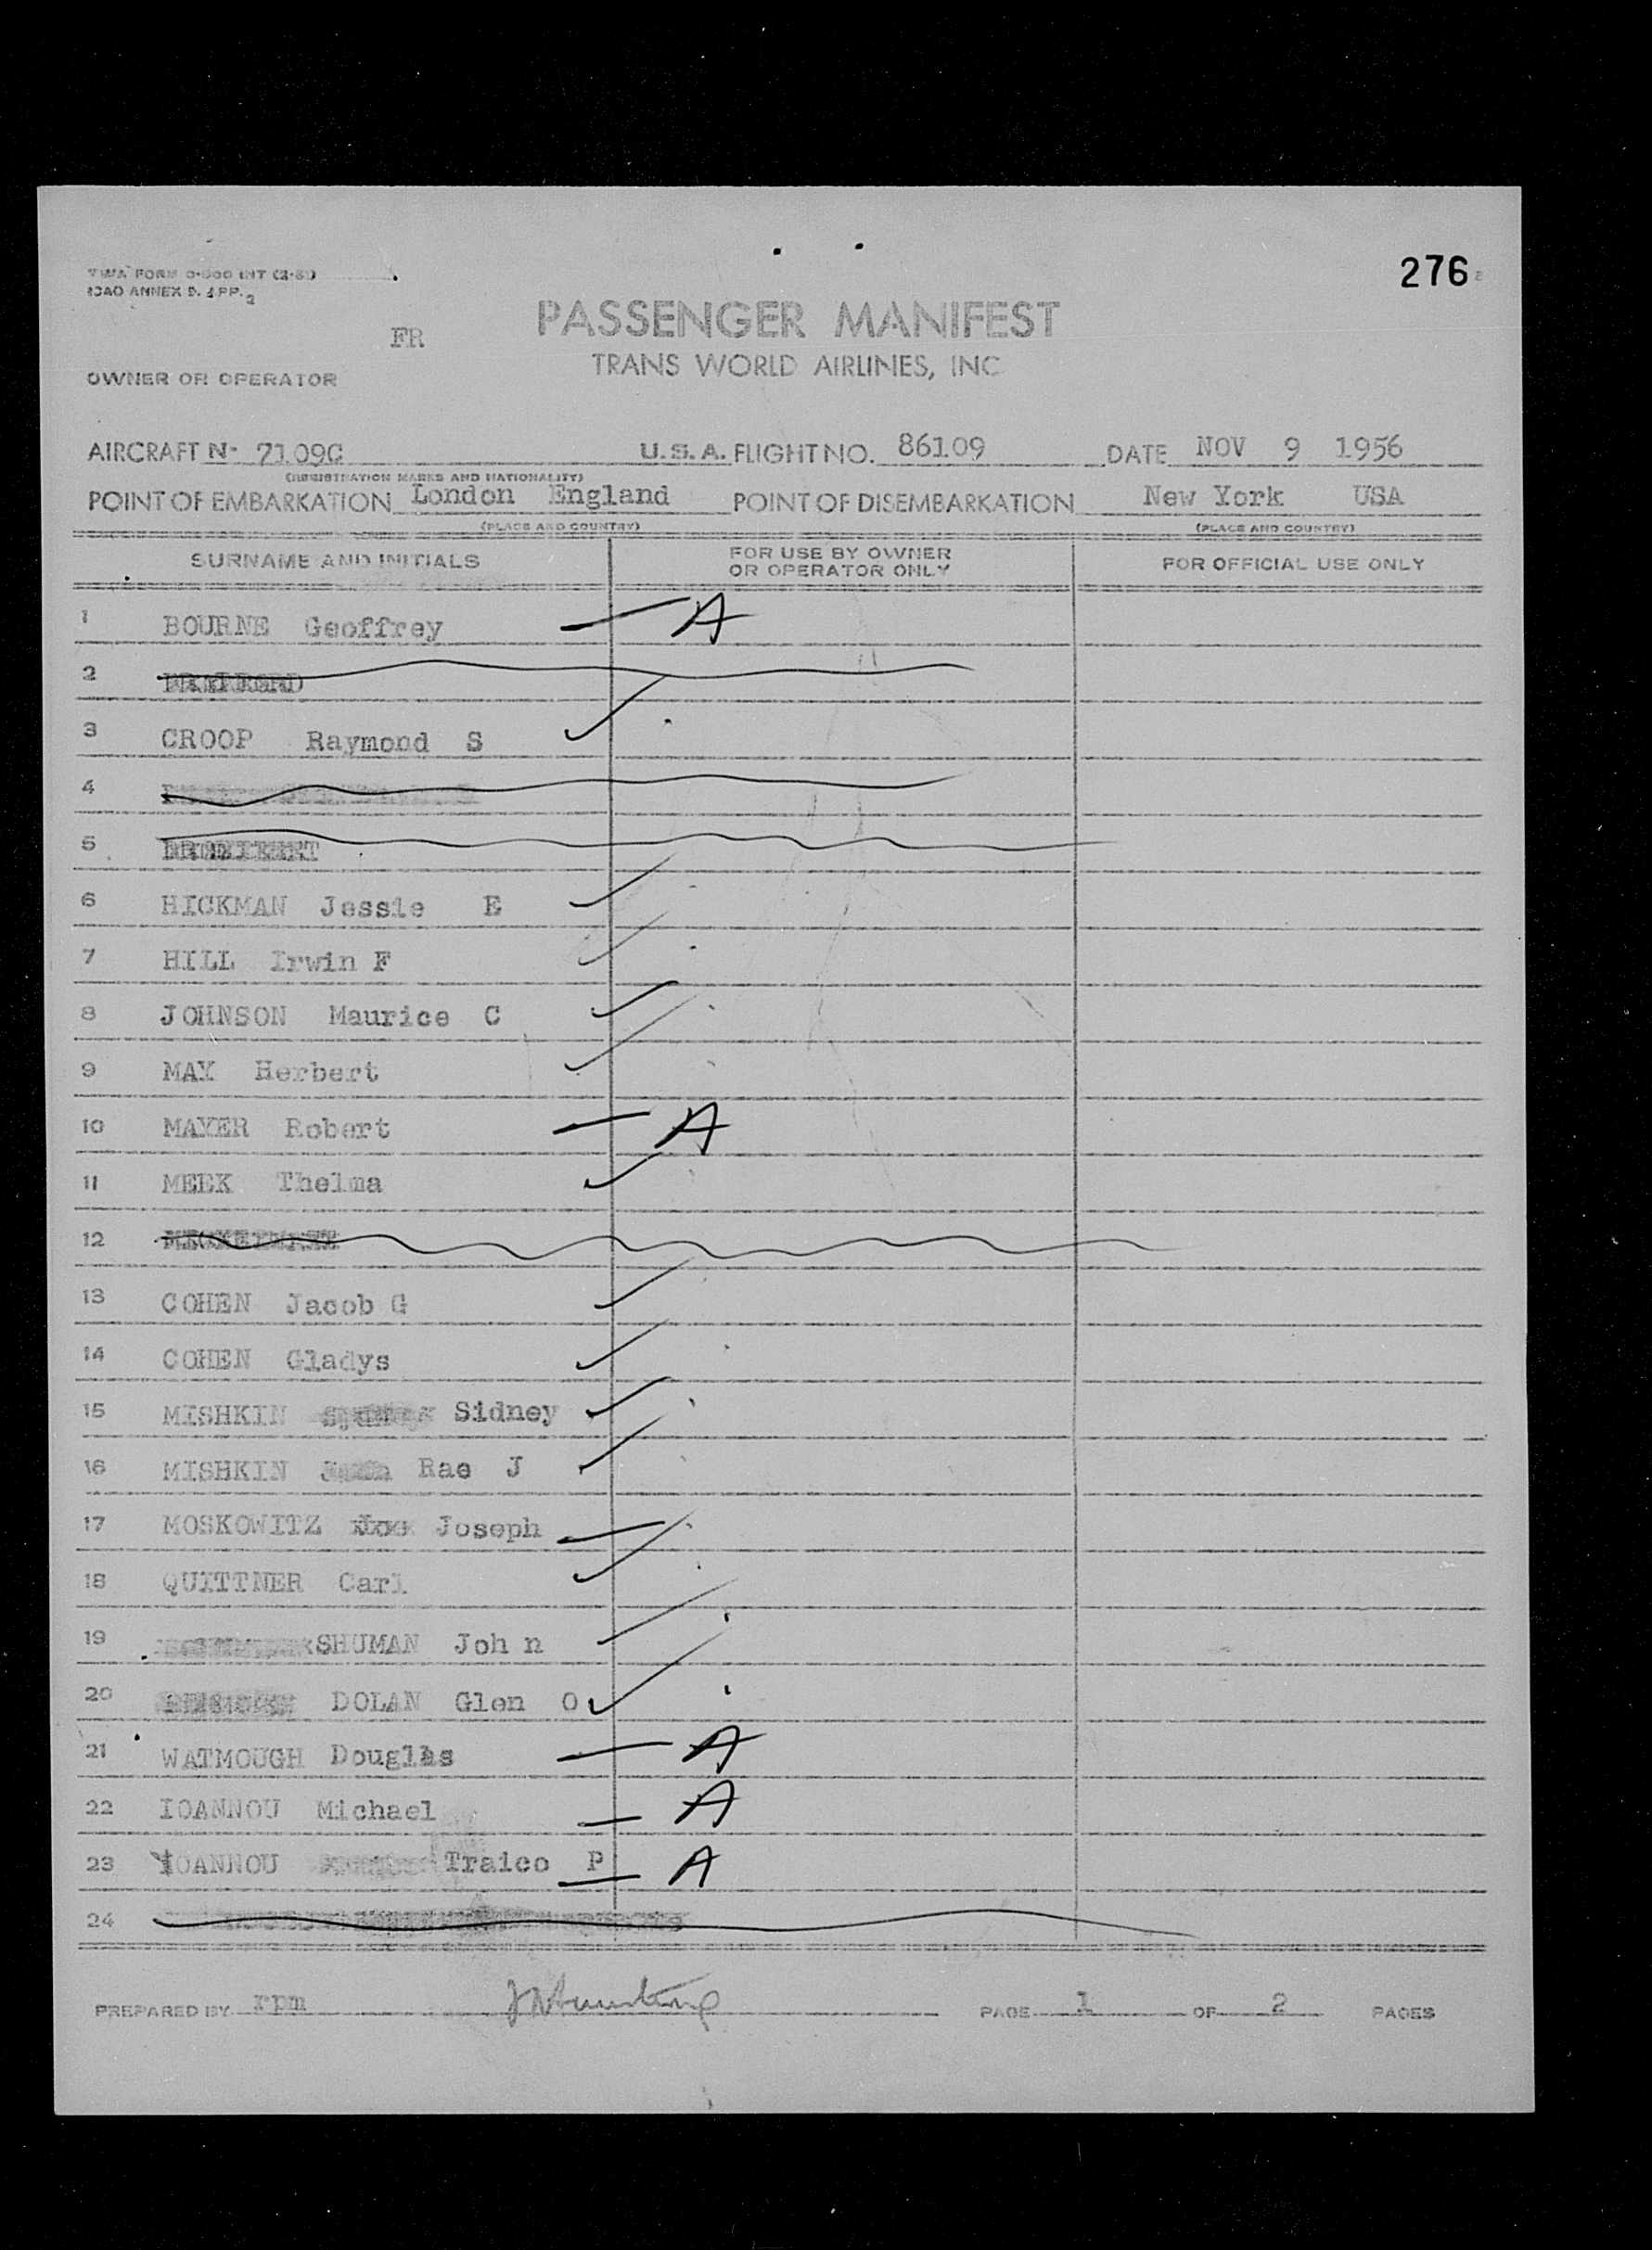 276
TWA FORM O-500 INT (2-51)
ICAO ANNEX 9. APP. 2
FR
PASSENGER MANIFEST
TRANS WORLD AIRLINES, INC
OWNER OR OPERATOR
AIRCRAFT N- 7109C U.S.A. FLIGHT NO. 86109 DATE NOV 9 1956
(REGISTRATION MARKS AND NATIONALITY)
POINT OF EMBARKATION London England POINT OF DISEMBARKATION New York USA
(PLACE AND COUNTRY) (PLACE AND COUNTRY)
SURNAME AND INITIALS FOR USE BY OWNER OR OPERATOR ONLY FOR OFFICIAL USE ONLY
1 BOURNE Geoffrey A
2
3 CROOP Raymond S
4
5
6 HICKMAN Jessie E
7 HILL Irwin F
8 JOHNSON Maurice C
9 MAY Herbert
10 MAYER Robert A
11 MEEK Thelma
12
13 COHEN Jacob G
14 COHEN Gladys
15 MISHKIN Sidney
16 MISHKIN Rae J
17 MOSKOWITZ Joseph
18 QUITTNER Carl
19 SHUMAN Joh n
20 DOLAN Glen O
21 WATMOUGH Douglas A
22 IOANNOU Michael A
23 IOANNOU Traico P A
24
PREPARED BY rpm PAGE 1 OF 2 PAGES